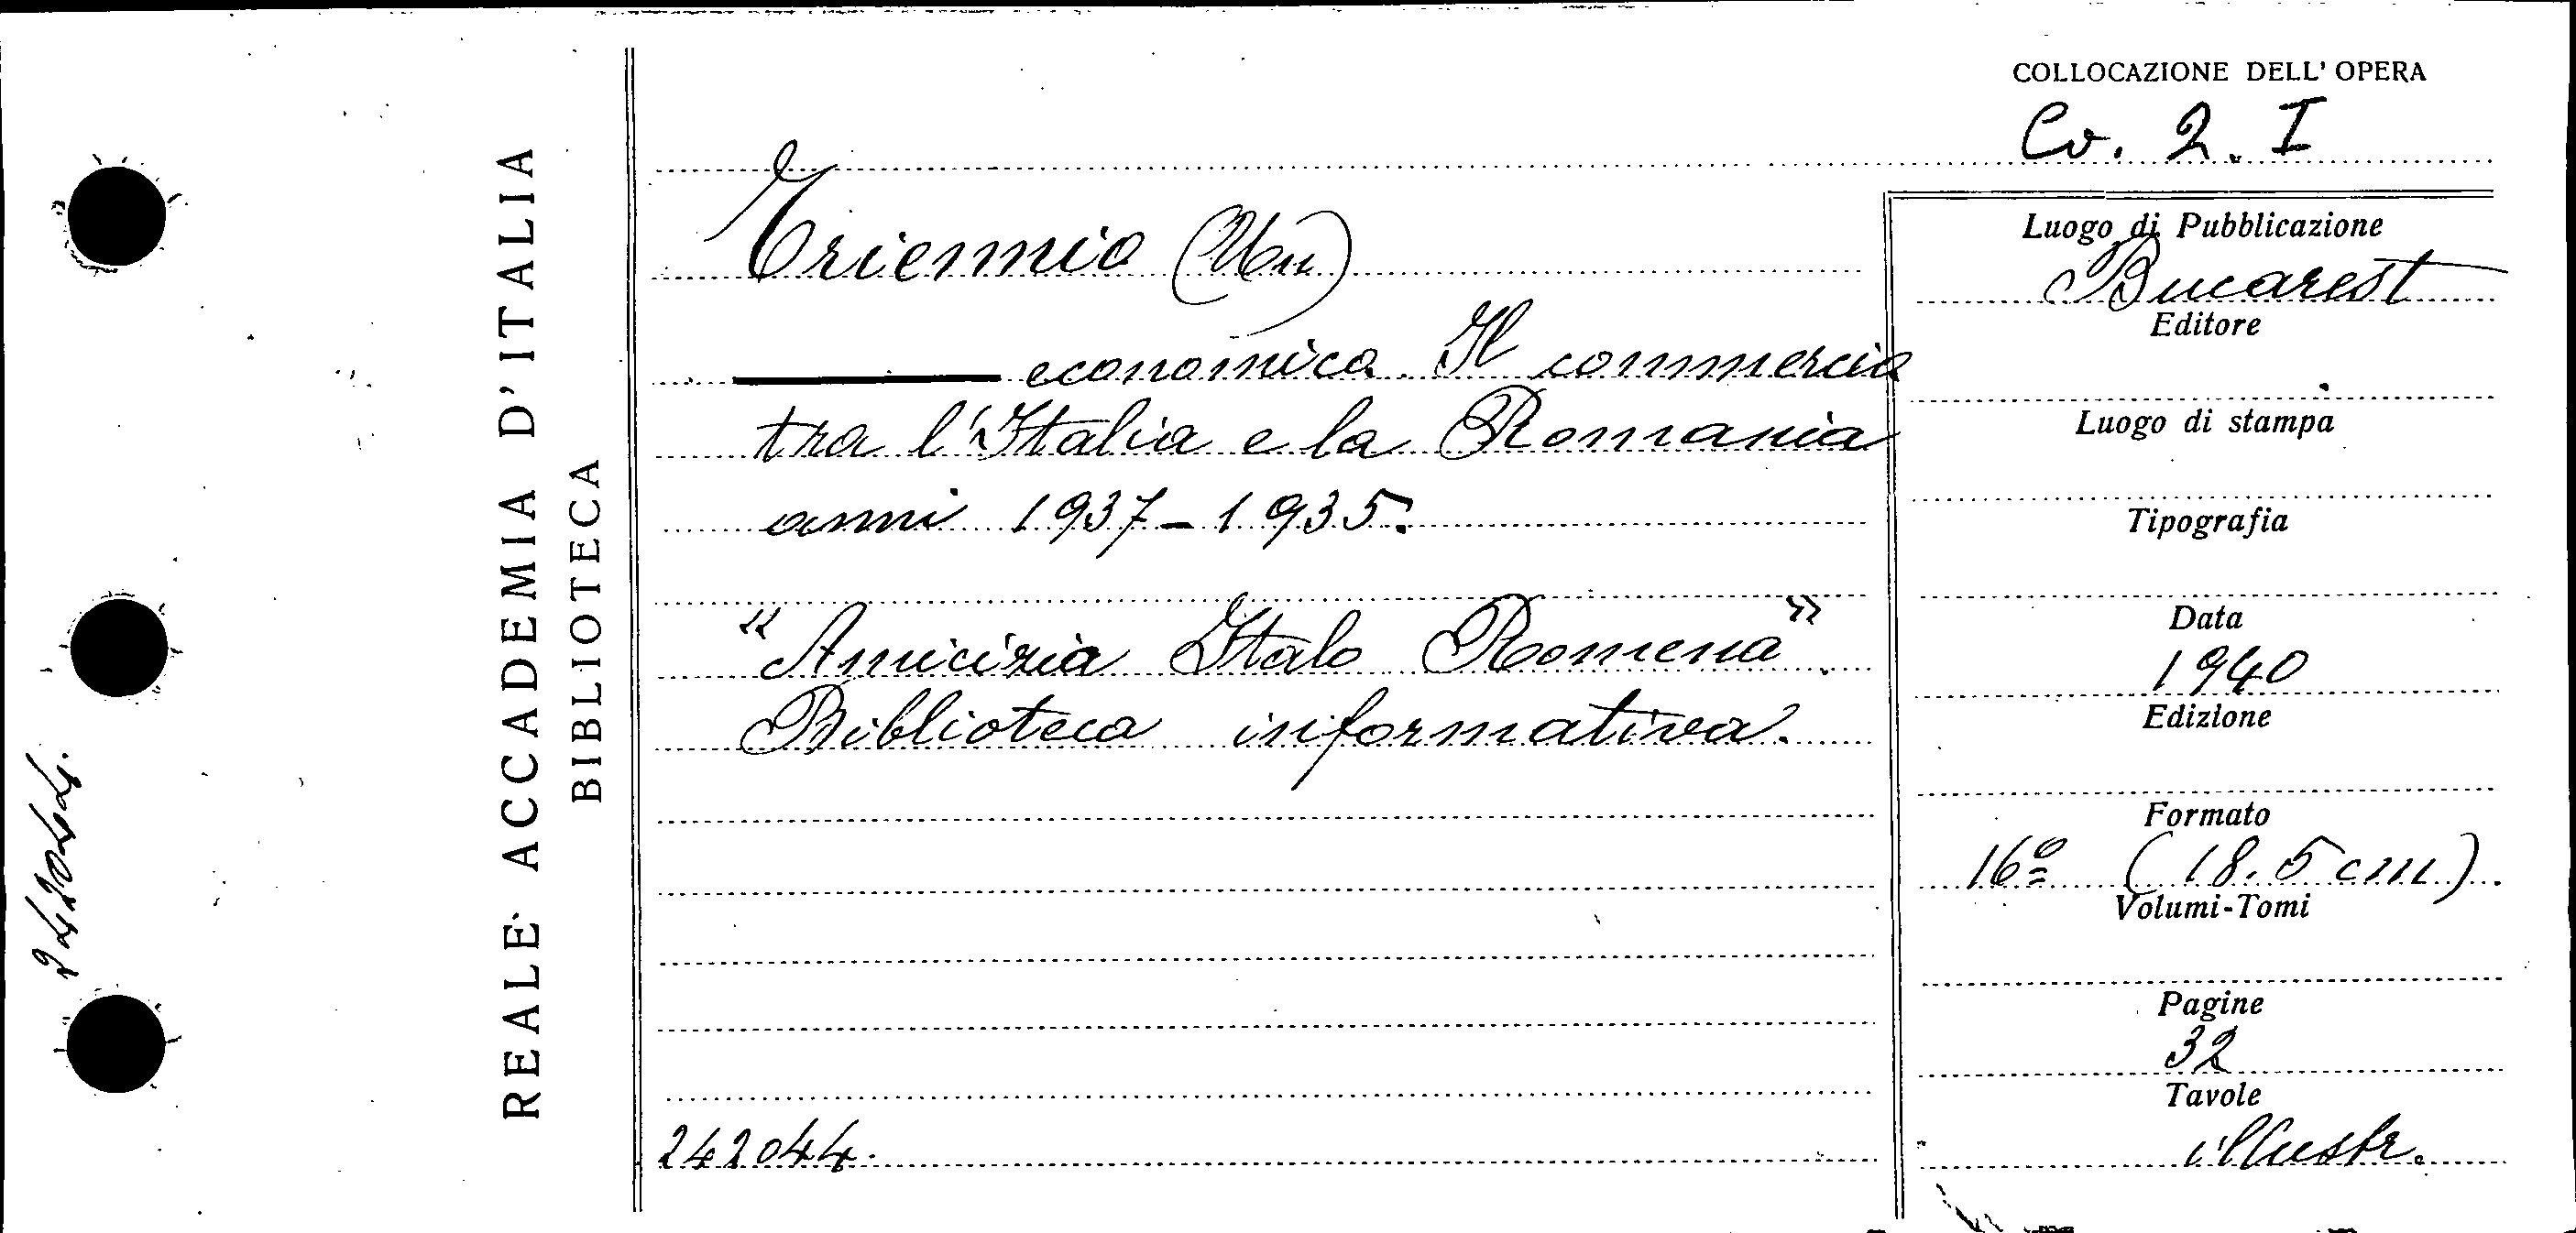 COLLOCAZIONE DELL' OPERA
Cv. 2. I
REALE ACCADEMIA D'ITALIA
BIBLIOTECA
242044.
Triennio (Un)
economica. Il commercio
tra l'Italia e la Romania
anni 1937-1935.
"Amicizia Italo Romena".
Biblioteca informativa.
242044.
Luogo di Pubblicazione
Bucarest
Editore
Luogo di stampa
Tipografia
Data
1940
Edizione
Formato
16º (18.5 cm).
Volumi-Tomi
Pagine
32
Tavole
illustr.